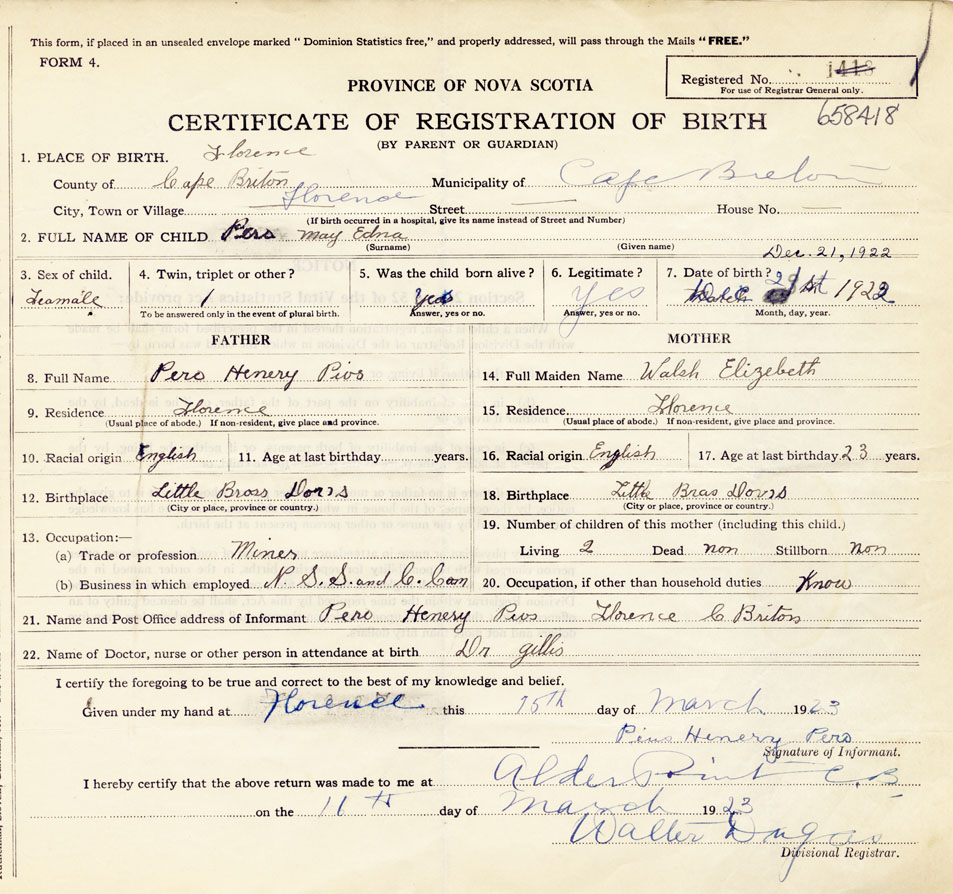 This form, if placed in an unsealed envelope marked "Dominion Statistics free," and properly addressed, will pass through the Mails "FREE."
FORM 4.
PROVINCE OF NOVA SCOTIA
Registered No. 1418
For use of Registrar General only.
658418
CERTIFICATE OF REGISTRATION OF BIRTH
(BY PARENT OR GUARDIAN)
1. PLACE OF BIRTH. Florence
County of Cape Briton Municipality of Cape Breton
City, Town or Village Florence Street — House No. —
(If birth occurred in a hospital, give its name instead of Street and Number)
2. FULL NAME OF CHILD Pero May Edna
(Surname) (Given name)
Dec. 21, 1922
3. Sex of child. 4. Twin, triplet or other? 5. Was the child born alive? 6. Legitimate? 7. Date of birth?
Feamale 1 Yes Yes 21st 1922
To be answered only in the event of plural birth. Answer, yes or no. Answer, yes or no. Month, day, year.
FATHER MOTHER
8. Full Name Pero Henery Pios 14. Full Maiden Name Walsh Elizebeth
9. Residence Florence 15. Residence. Florence
(Usual place of abode.) If non-resident, give place and province. (Usual place of abode.) If non-resident, give place and province.
10. Racial origin English 11. Age at last birthday years. 16. Racial origin English 17. Age at last birthday 23 years.
12. Birthplace Little Bross Dors 18. Birthplace Little Bras Dors
(City or place, province or country.) (City or place, province or country.)
19. Number of children of this mother (including this child.)
13. Occupation:—
(a) Trade or profession Miner Living 2 Dead non Stillborn non
(b) Business in which employed N. S. S. and C. Com 20. Occupation, if other than household duties Know
21. Name and Post Office address of Informant Pero Henery Pios Florence C Briton
22. Name of Doctor, nurse or other person in attendance at birth Dr gillis
I certify the foregoing to be true and correct to the best of my knowledge and belief.
Given under my hand at Florence this 15th day of March 1923
Pius Henery Pero
Signature of Informant.
I hereby certify that the above return was made to me at Alder Point C B
on the 16th day of March 1923
Walter Dugas
Divisional Registrar.